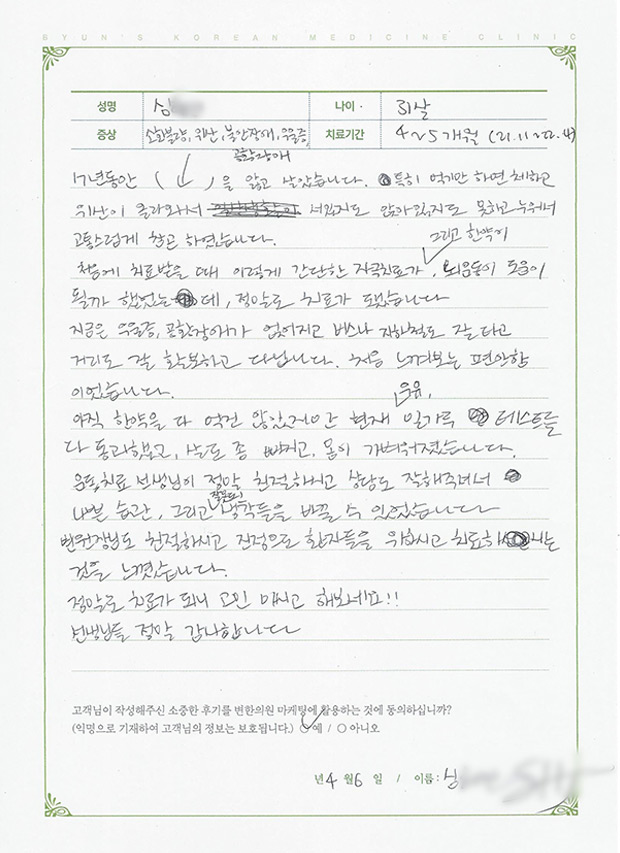 BYUN'S KOREAN MEDICINE CLINIC
성명 심 나이 · 31살
증상 소화불량, 위산, 불안장애, 우울증, 공황장애 치료기간 4~5개월 (21.11~22.4)
17년동안 ( ↓ )을 앓고 살았습니다. 특히 먹기만 하면 체하고
위산이 올라와서 서있지도 앉아있지도 못하고 누워서
고통스럽게 참곤 하였습니다.
처음에 치료받을 때 이렇게 간단한 자극치료가, 그리고 한약이 뇌운동이 도움이
될까 했었는데, 정말로 치료가 됐습니다
지금은 우울증, 공황장애가 없어지고 버스나 지하철도 잘 타고
거리도 잘 활보하고 다닙니다. 처음 느껴보는 편안함
이었습니다.
아직 한약을 다 먹진 않았지만 현재 우유, 밀가루 테스트를
다 통과했고, 살도 좀 빠지고, 몸이 가벼워졌습니다.
운동치료 선생님이 정말 친절하시고 상담도 잘해주셔서
나쁜 습관, 그리고 잘못된 생각들을 바꿀 수 있었습니다
변원장님도 친절하시고 진정으로 환자들을 위하시고 치료하시는
것을 느꼈습니다.
정말로 치료가 되니 고민 마시고 해보세요!!
선생님들 정말 감사합니다
고객님이 작성해주신 소중한 후기를 변한의원 마케팅에 활용하는 것에 동의하십니까?
(익명으로 기재하여 고객님의 정보는 보호됩니다.) ○ 예 / ○ 아니오
년 4 월 6 일 / 이름 : 심